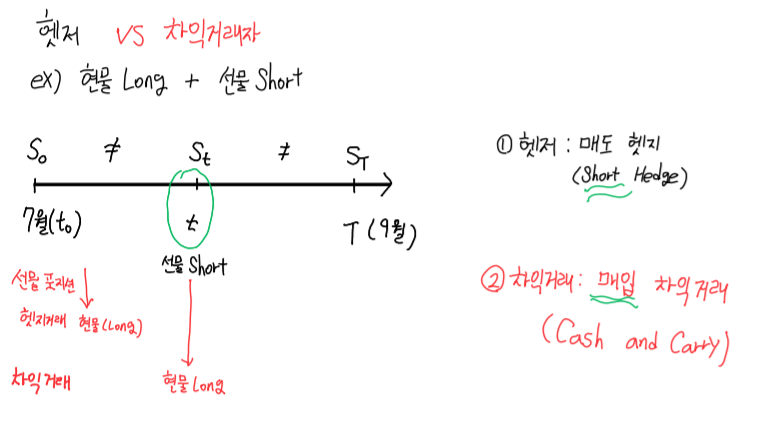 헷저 VS 차익거래자
ex) 현물 Long + 선물 Short
S₀ ≠ St ≠ ST
7월(t₀) t T (9월)
선물 Short
선물 포지션
헷지거래 현물(Long)
차익거래 현물 Long
① 헷저 : 매도 헷지
(Short Hedge)
② 차익거래 : 매입 차익거래
(Cash and Carry)